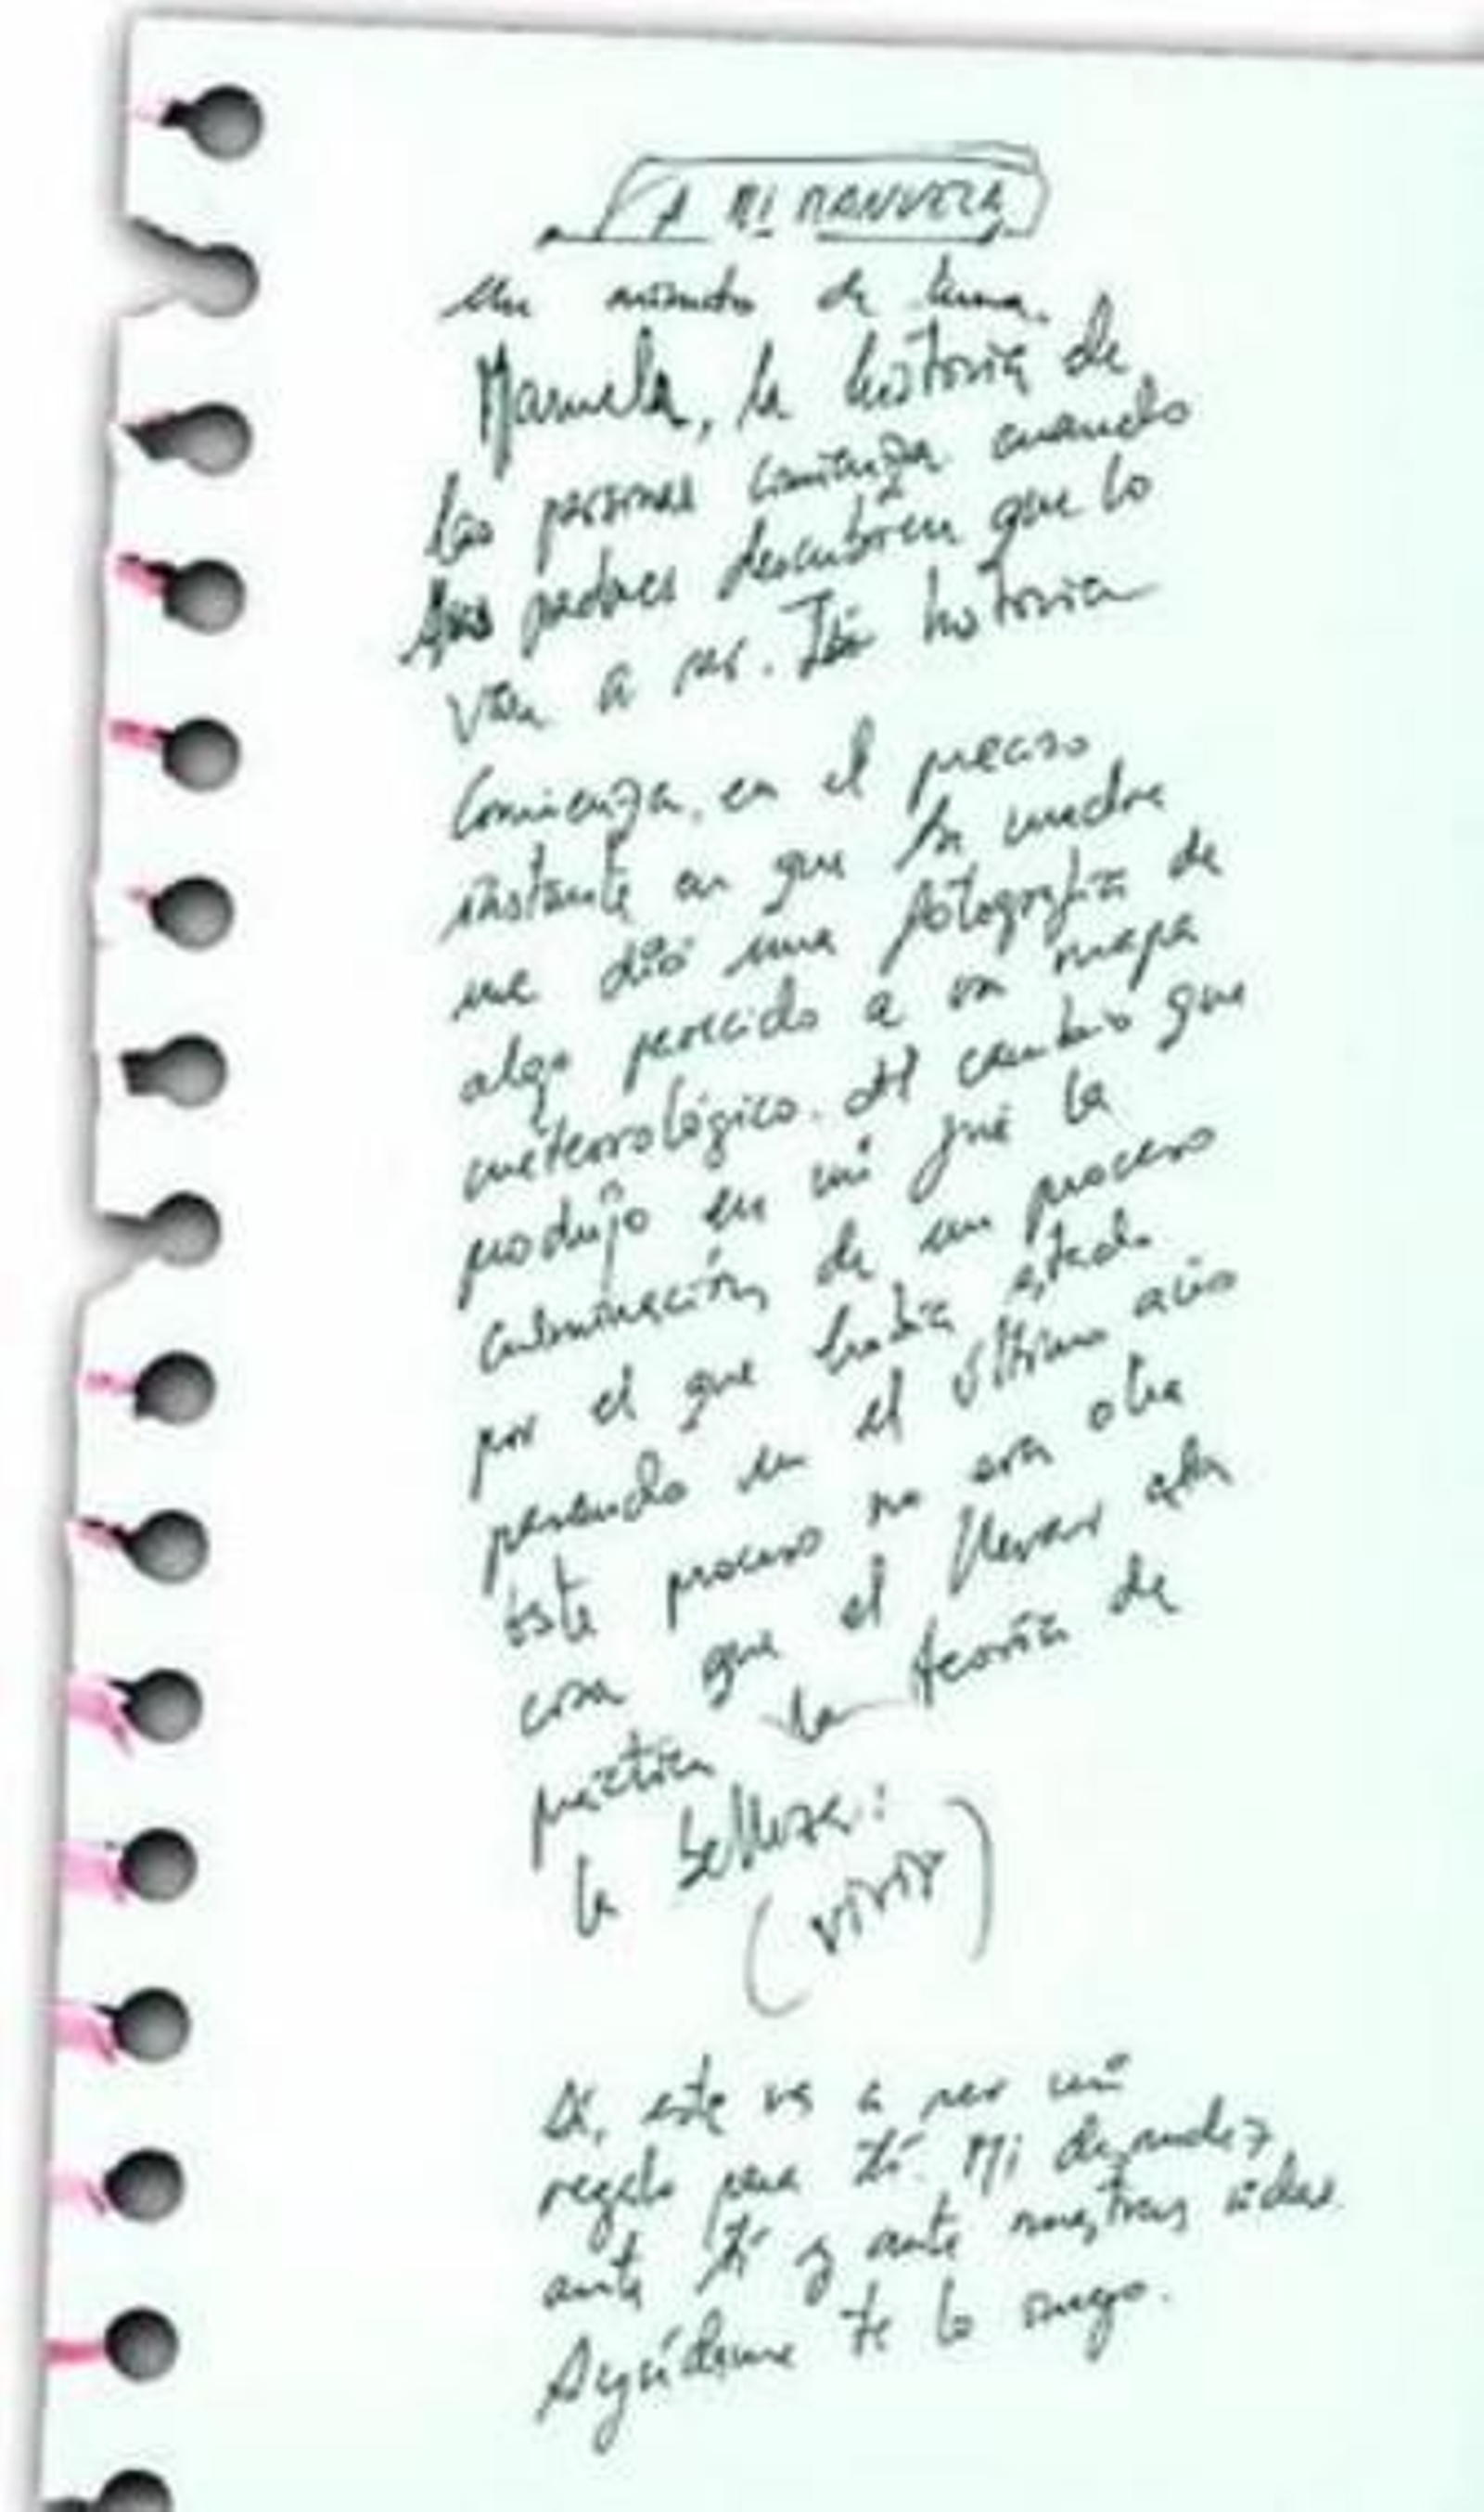 A MI MANUELA
Un minuto de luna.
Manuela, la historia de
las personas comienza cuando
sus padres descubren que lo
van a ser. Tú historia
comienza, en el preciso
instante en que tu madre
me dió una fotografía de
algo parecido a un mapa
meteorológico. El cambio que
produjo en mi fué la
culminación, de un proceso
por el que había estado
pasando en el último año
Este proceso no era otra
cosa que el llevar a la
práctica la teoría de
la belleza:
(vivir)
Sí, este va a ser mi
regalo para tí. Mi desnudez,
ante tí y ante nuestras vidas.
Ayúdame te lo ruego.